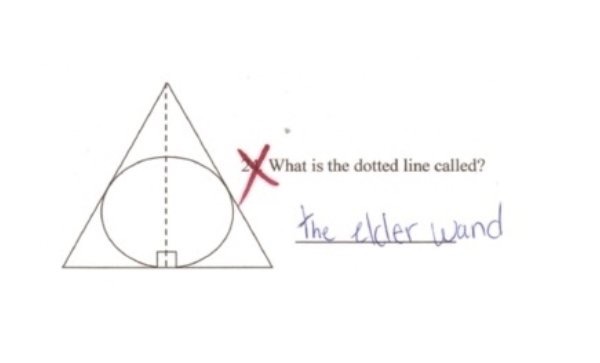 What is the dotted line called?
the elder wand